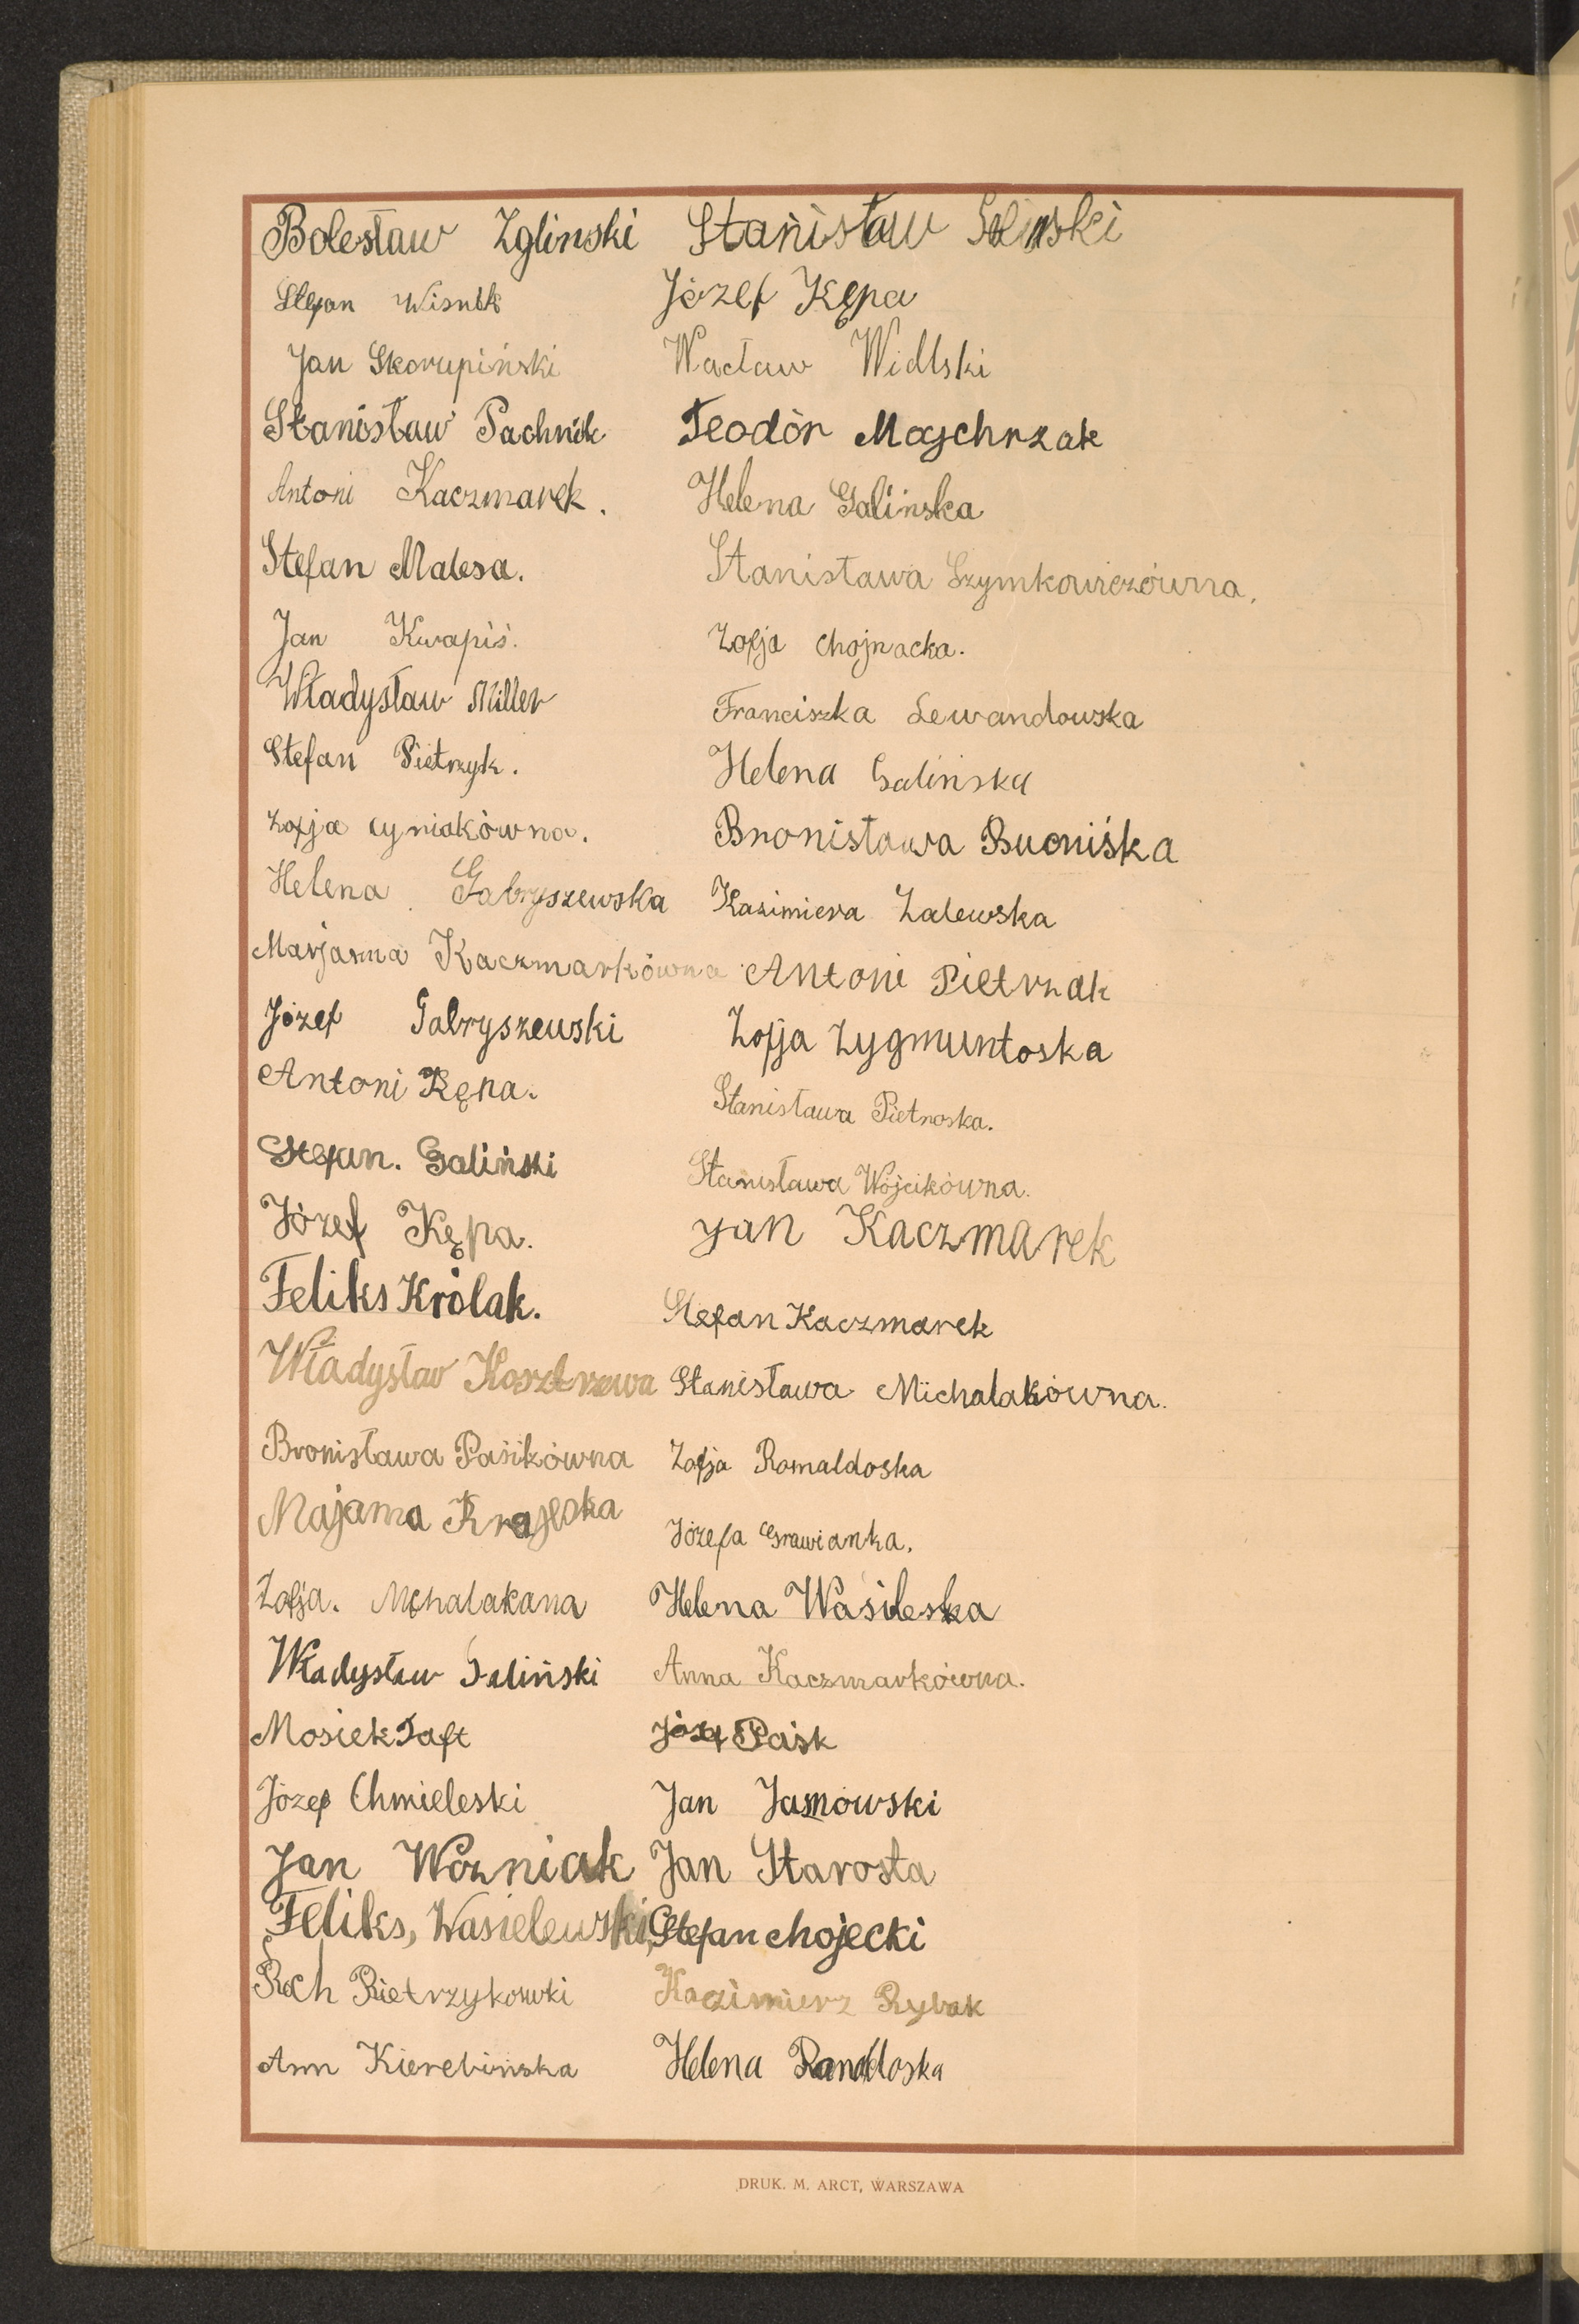 Bolesław Zglinski
Stefan
Jan Skorupiński
Stanisław Pachnik
Antoni Kaczmarek.
Stefan Malesa.
Jan Kwapiś.
Władysław Miller
Stefan Pietrzyk.
Zofja Cyniakówna.
Helena Gabryszewska
Marjanna Kaczmarkówna
Józef Gabryszewski
Antoni Kępa.
Stefan. Galiński
Józef Kępa.
Feliks Królak.
Władysław
Bronisława Pasikówna
Zofja. Mchalakana
Władysław Galiński
Mosiek Taft
Józef Chmieleski
Jan Wozniak
Feliks, Wasielewski,
Roch Pietrzykowki
Ann Kierebińska
Stanisław
Józef Kępa
Wacław Widlski
Teodòr Majchrzak
Helena Galińska
Stanisława Szymkowiczówna.
Zofja Chojnacka.
Franciszka Lewandowska
Helena Galińska
Bronisława
Kazimiera Zalewska
Antoni Pietrzak
Zofja Zygmuntoska
Stanisława Pietroska.
Stanisława Wójcikówna.
Jan Kaczmarek
Stefan Kaczmarek
Stanisława Michalakówna.
Zofja Romaldoska
Józefa Grawianka.
Helena Wasileska
Anna Kaczmarkówna.
Józef Paśk
Jan
Jan Starosta
Stefan chojecki
Kazimierz Rybak
Helena
DRUK. M. ARCT, WARSZAWA